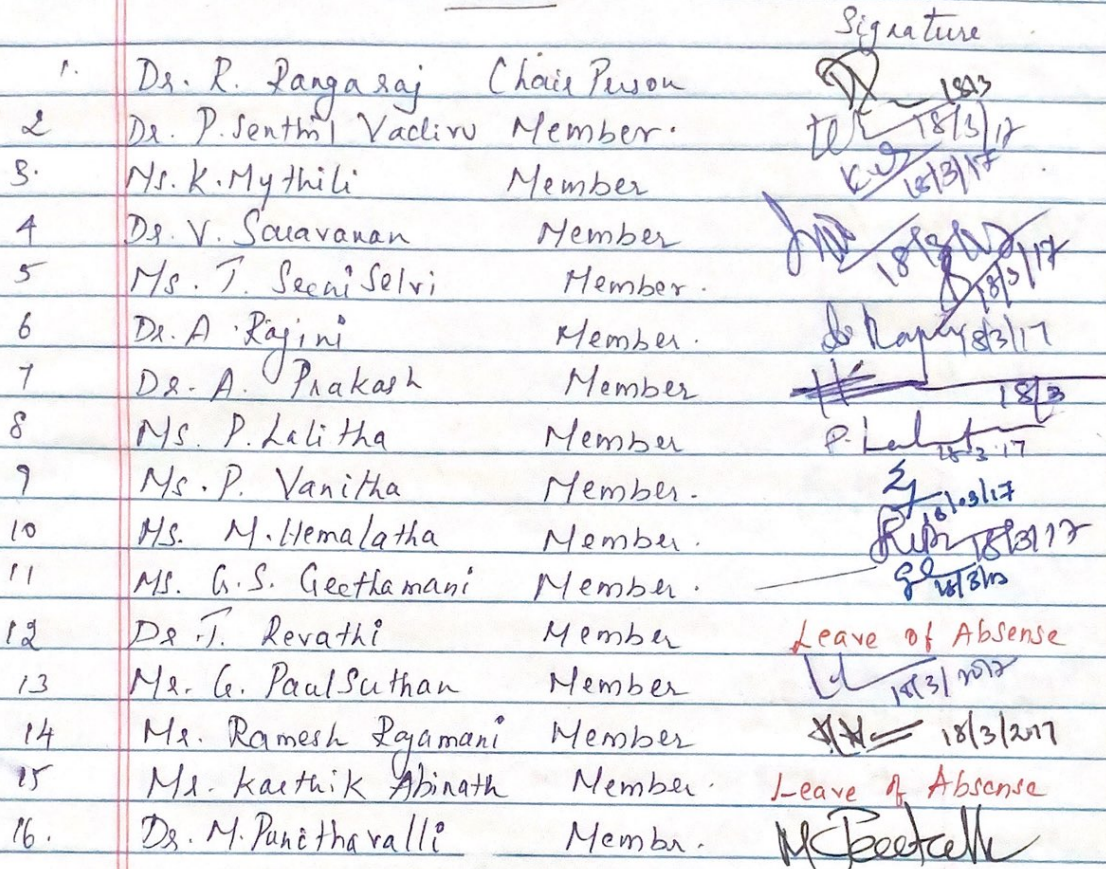 Signature
1. Dr. R. Rangaraj Chair Person 18/3
2 Dr. P. Senthil Vadivu Member. 18/3/17
3. Ms. K. Mythili Member K. 18/3/17
4 Dr. V. Saravanan Member 18/3/17
5 Ms. T. Seeni Selvi Member. 18/3/17
6 Dr. A. Rajini Member. 18/3/17
7 Dr. A. Prakash Member 18/3
8 Ms. P. Lalitha Member P. 18.3.17
9 Ms. P. Vanitha Member. 18/03/17
10 Ms. M. Hemalatha Member. 18/3/17
11 Ms. G. S. Geethamani Member. 18/3/17
12 Dr. T. Revathi Member Leave of Absense
13 Mr. G. Paul Suthan Member 18/3/2017
14 Mr. Ramesh Rajamani Member 18/3/2017
15 Mr. Karthik Abinath Member. Leave of Absense
16. Dr. M. Punithavalli Membr.